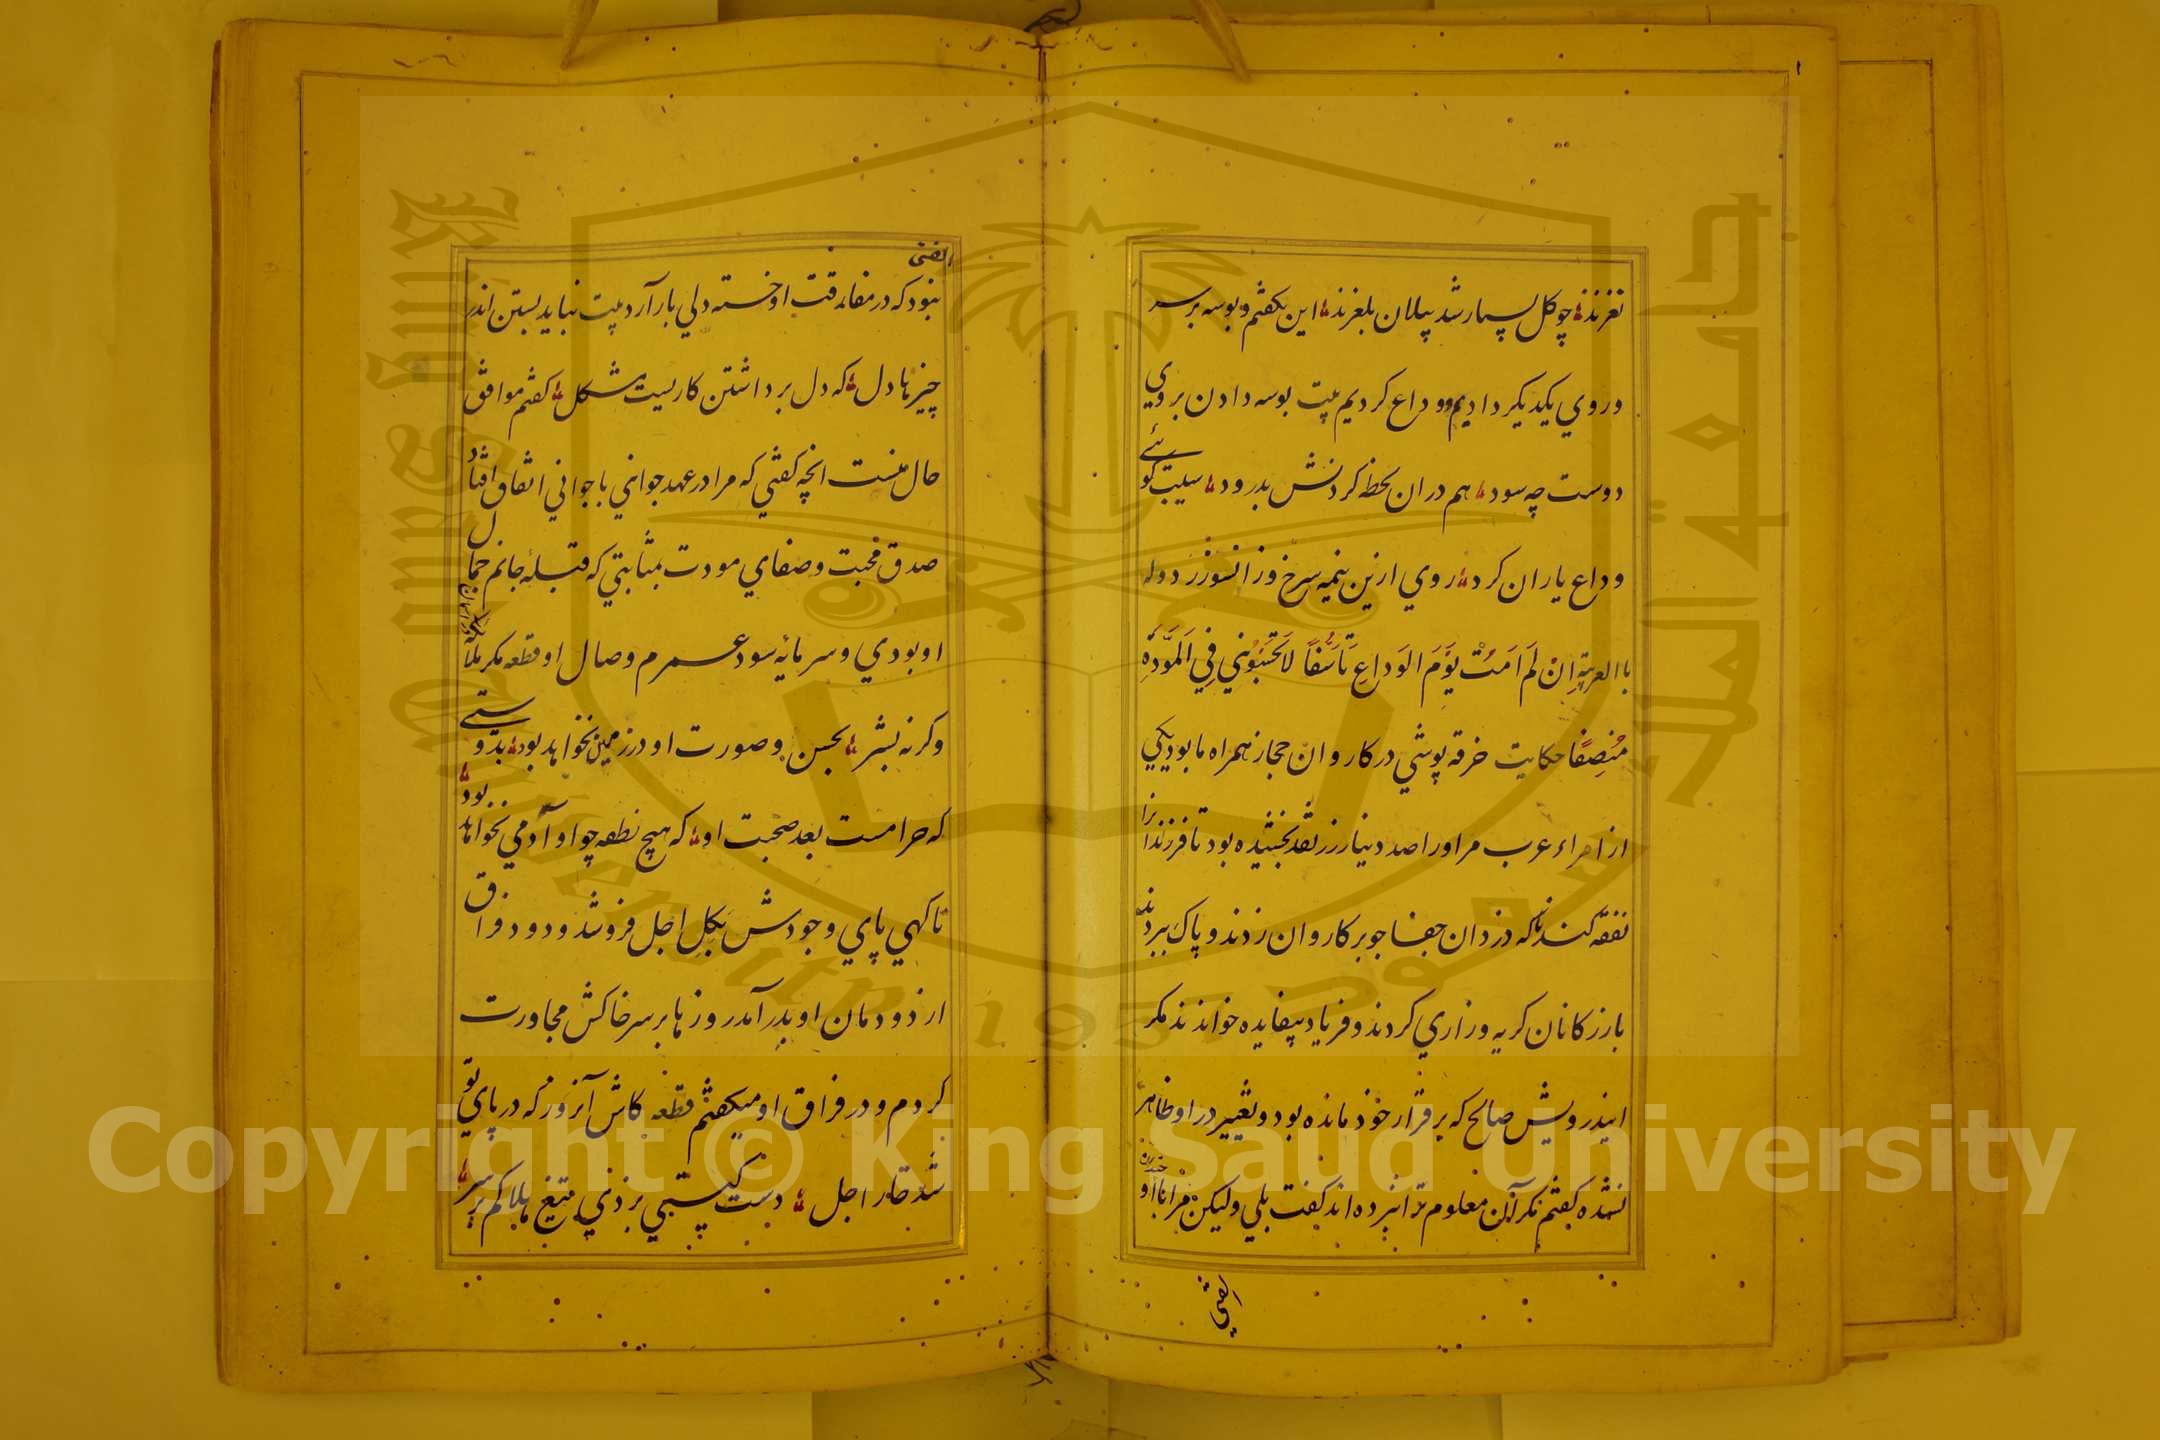 نغزند چو کل بسیار شد پیلان بلغزند این بکفتم و بوسه بر سر
و روي یکدیکر دادیم و وداع کردیم بیت بوسه دادن بروي
دوست چه سود هم دران لحظه کردنش بدرود سیب کوئے
وداع یاران کرد روي ازین نیمه سرخ وزانسو زرد وله
باالعربیة اِنْ لَم اَمَتْ یَوْمَ الوَداعِ تَاَسُّفًا لا تَحْسَبُوْني فِي المَوَّدَةِ
مُنْصِفًا حکایت خرقه پوشي در کاروان حجاز همراه ما بود یکي
از امراء عرب مر اورا صد دینار زر نقد بخشیده بود تا فرزندانرا
نفقه کند ناکه دزدان جفاجو بر کاروان زدند و پاک ببردند
بارزکانان کریه و زاري کردند و فریاد بیفایده خواندند مکر
ایندرویش صالح که بر قرار خود مانده بود و تغییر در او ظاهر
نشده کفتم مکر آن معلوم ترا نبرده اند کفت بلي ولیکن مرا باآو
الفتي
الفتی
نبود که در مفارقت او خسته دلي بار آرد بیت نباید بستن اندر
چیزها دل که دل برداشتن کاریست مشکل کفتم موافق
حال منست انچه کفتي که مرا در عهد جواني با جواني اتفاق افتاد
صدق محبت و صفاي مودت بمثابتي که قبلهٔ جانم جمال
او بودي و سرمایهٔ سود عمرم وصال او قطعه مکر ملائکه
وکرنه بشر بحسن و صورت او در زمین نخواهد بود بدوستے
که حرامست بعد صحبت او که هیچ نطفه چو او آدمي نخواهد بود
تا کهي پاي وجودش بکل اجل فرو شد و دود فراق
از دودمان او بدر آمد روزها بر سر خاکش مجاورت
کردم و در فراق او میکفتم قطعه کاش آنروز که در پاي تو
شد خار اجل دست کیتي بزدي تیغ هلاکم بر سر
King Saud University
جامعة الملك سعود
1957
Copyright © King Saud University